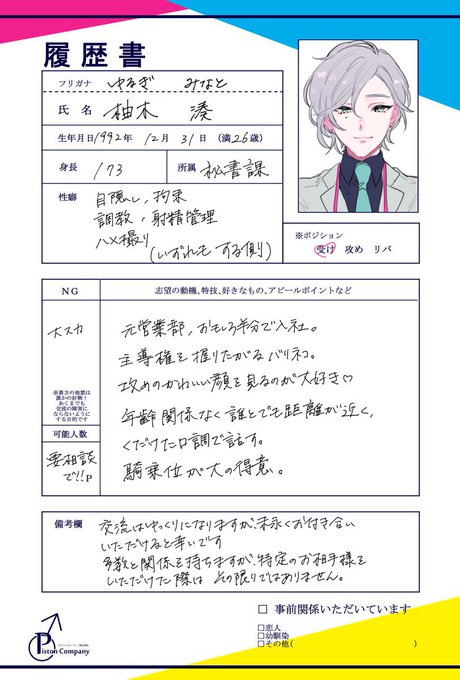 履歴書
フリガナ ゆるぎ みなと
氏名 柚木 湊
生年月日 1992年 12月 31日 (満26歳)
身長 173 所属 秘書課
性癖 目隠し、拘束
調教、射精管理
ハメ撮り
(いずれもする側)
※ポジション
受け 攻め リバ
NG
大スカ
※貴方の地雷は
誰かの好物!
あくまでも
交流の障害に
ならないように
する目的です
可能人数
要相談
で!! P
志望の動機、特技、好きなもの、アピールポイントなど
元営業部、おもしろ半分で入社。
主導権を握りたがるバリネコ。
攻めのかわいい顔を見るのが大好き♡
年齢関係なく誰とでも距離が近く、
くだけた口調で話す。
騎乗位が大の得意。
備考欄
交流はゆっくりになりますが、末永くお付き合い
いただけると幸いです
多数と関係を持ちますが、特定のお相手様を
いただけた際はその限りではありません。
□ 事前関係いただいています
□恋人
□幼馴染
□その他( )
Piston Company